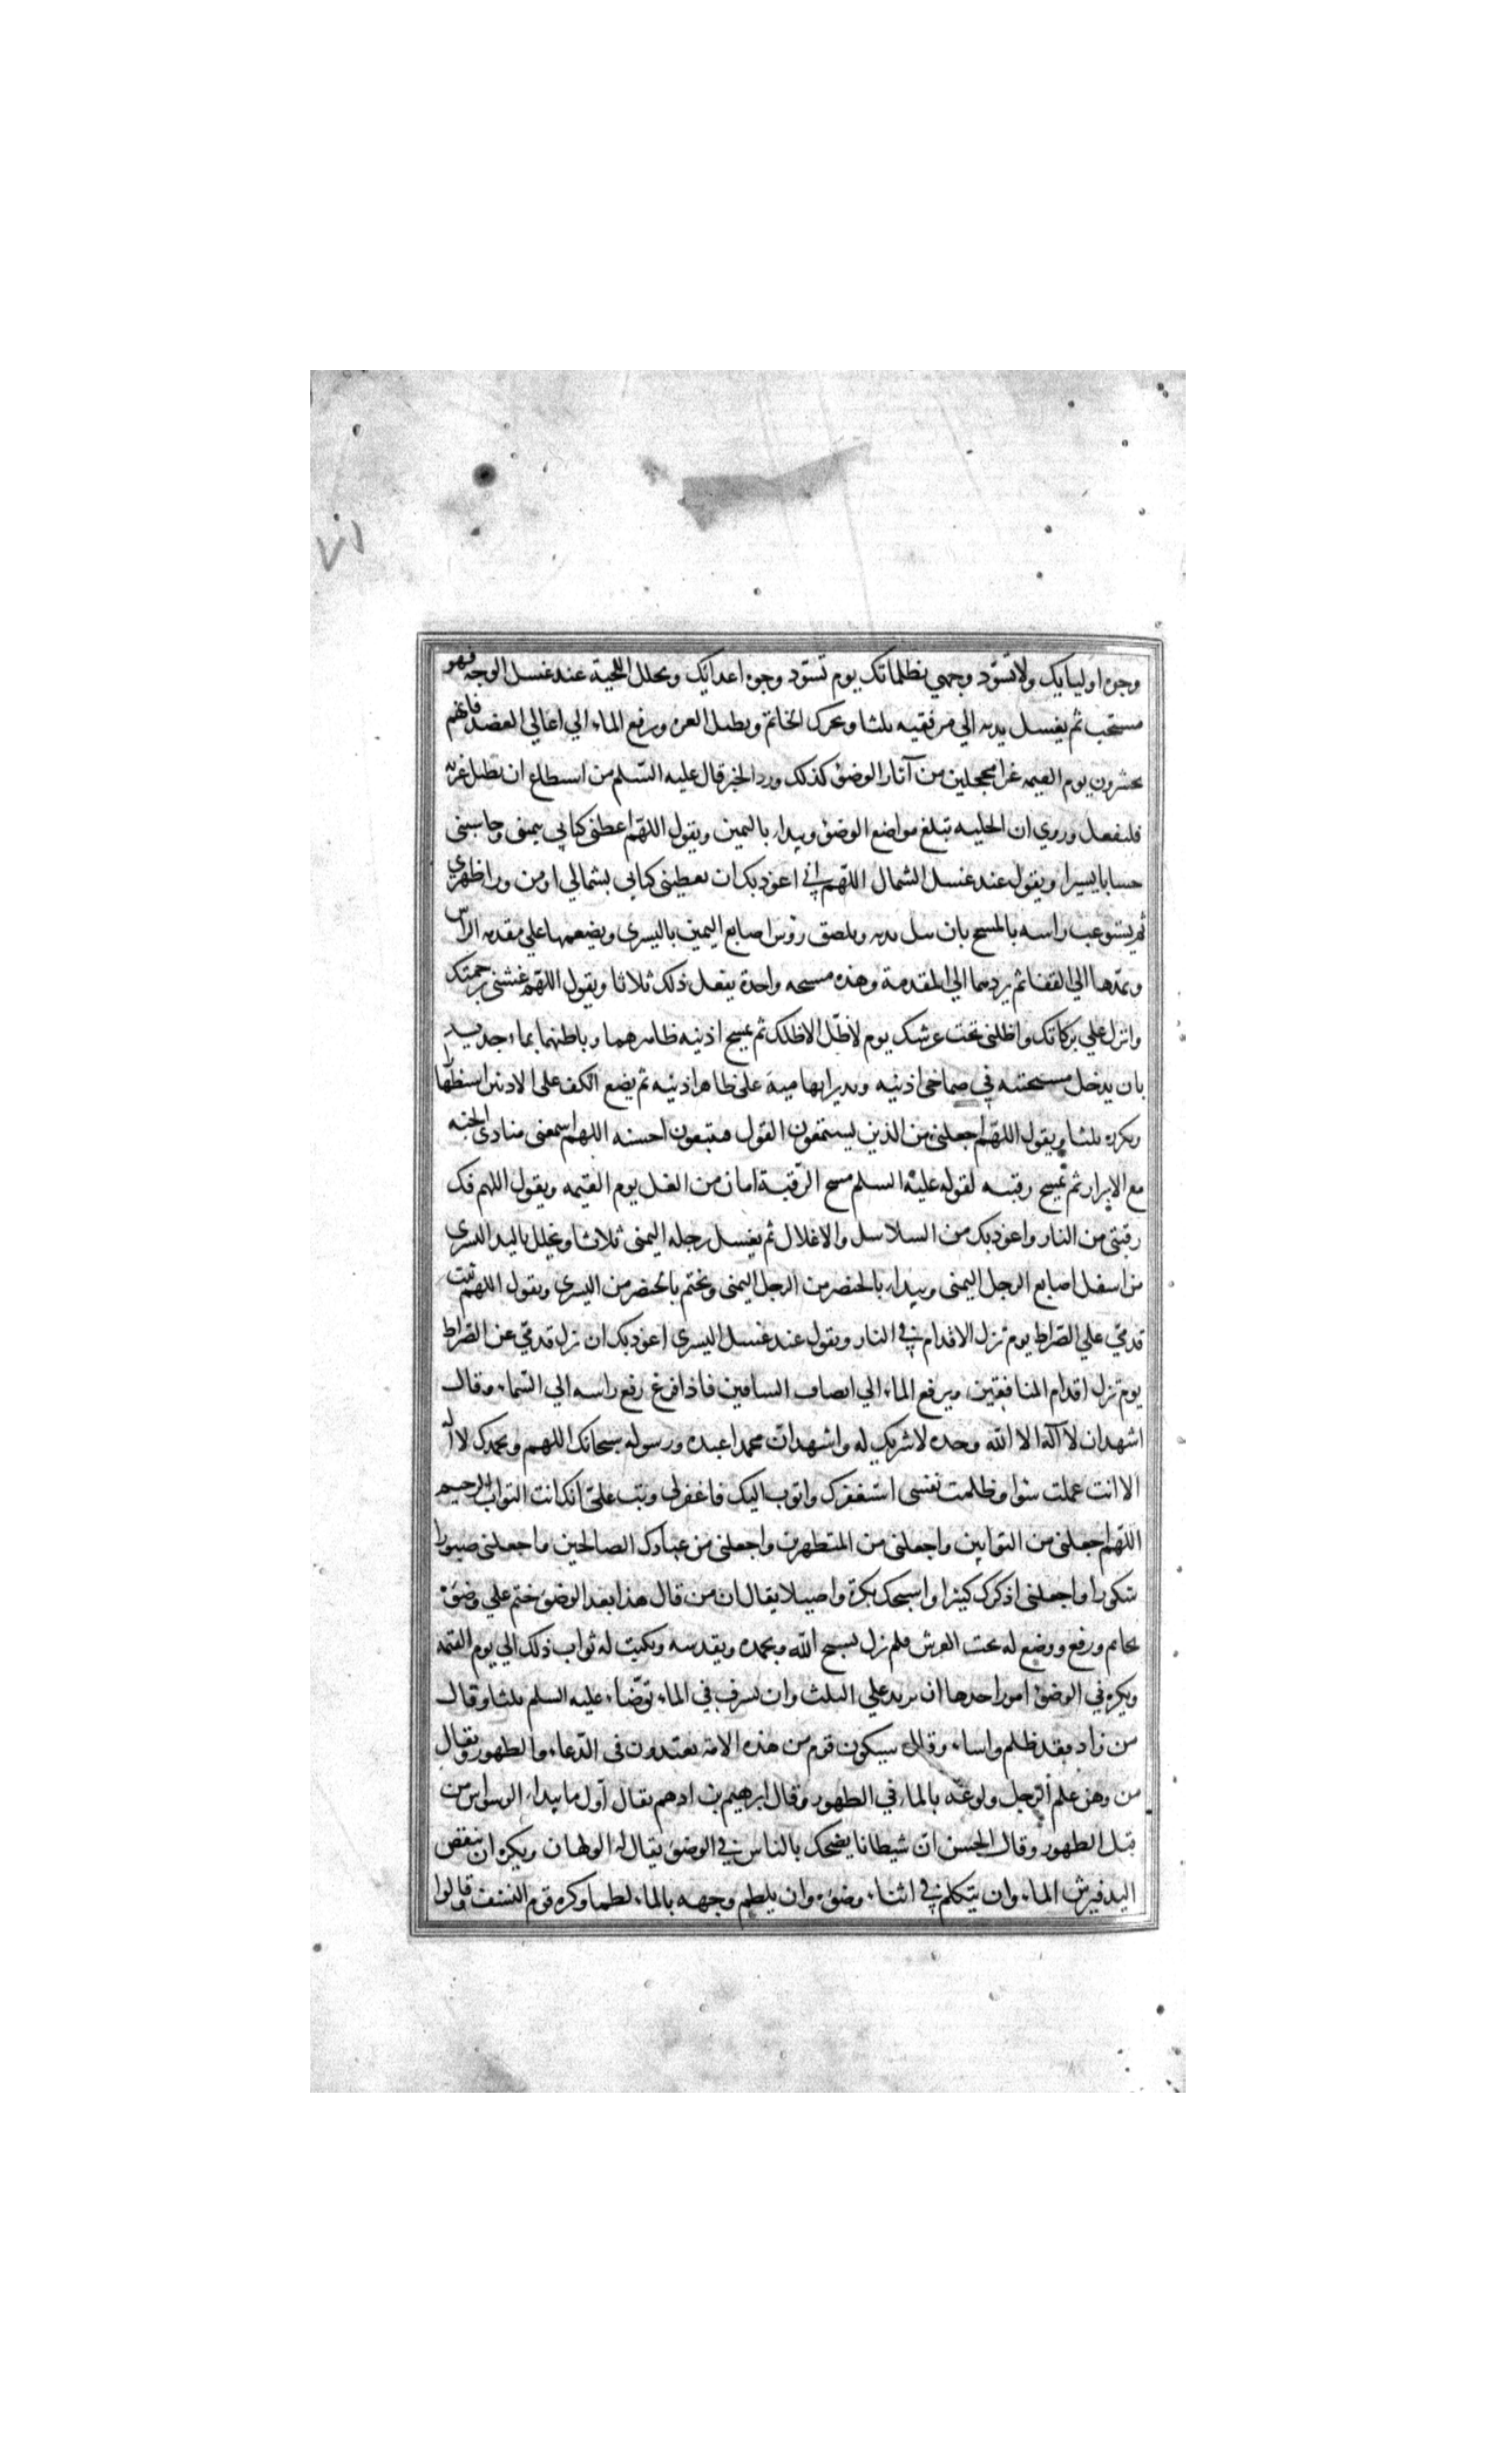 ٧١
وجوه اوليايك ولا تسوّد وجهي بظلماتك يوم تسوّد وجوه اعدائك ويخلل اللحية عند غسل الوجه فهو
مستحب ثم يغسل يديه الي مرفقيه ثلثا ويحرك الخاتم ويطيل الغرة ويرفع الماء الي اعالي العضد فانهم
يحشرون يوم القيمه غرا محجلين من آثار الوضؤ كذلك ورد الخبر قال عليه السّلم من استطاع ان يطيل غرته
فليفعل وروي ان الحليه تبلغ مواضع الوضؤ ويبداء باليمين ويقول اللهّم اعطني كتابي بيميني وحاسبني
حسابا يسيرا ويقول عند غسل الشمال اللهّم اني اعوذ بك ان تعطيني كتابي بشمالي او من وراظهري
ثم يستوعب راسه بالمسح بان يبل يديه ويلصق رؤس اصابع اليمين باليسري ويضعهما علي مقدمه الراس
ويمدّهما الي القفا ثم يردهما الي المقدمة وهذه مسحه واحدة يفعل ذلك ثلاثا ويقول اللهّم غشني برحمتك
وانزل علي بركاتك واظلني تحت عرشك يوم لاظلّ الاظلك ثم يمسح اذنيه ظاهرهما وباطنهما بماء جديد
بان يدخل مسبحتيه في صماخي اذنيه ويدير ابهاميه على ظاهر اذنيه ثم يضع الكف على الاذنين استظهارا
ويكرره ثلثا ويقول اللهّم اجعلني من الذين يستمعون القول فيتبعون احسنه اللهم اسمعني منادي الجنه
مع الابرار ثم يمسح رقبته لقوله عليه السلم مسح الرقبة امان من الغل يوم القيمه ويقول اللهم فك
رقبتي من النار واعوذ بك من السلاسل والاغلال ثم يغسل رجله اليمني ثلاثا ويخلل باليد اليسري
من اسفل اصابع الرجل اليمني ويبداء بالخنصر من الرجل اليمني ويختم بالخنصر من اليسري ويقول اللهم ثبت
قدمي علي الصّراط يوم تزل الاقدام في النار ويقول عند غسل اليسري اعوذ بك ان تزل قدمي عن الصّراط
يوم تزل اقدام المنافقين ويرفع الماء الي انصاف الساقين فاذا فرغ رفع راسه الي السّماء وقال
اشهد ان لا آله الا الله وحده لا شريك له واشهد ان محمدا عبده ورسوله سبحانك اللهم وبحمدك لا اله
الا انت عملت سوا وظلمت نفسي استغفرك واتوب اليك فاغفر لي وتب عليّ انك انت التواب الرحيم
اللهّم اجعلني من التوابين واجعلني من المتطهرين واجعلني من عبادك الصالحين واجعلني صبورا
شكورا واجعلني اذكرك كثيرا واسبحك بكرة واصيلا يقال ان من قال هذا بعد الوضؤ ختم علي وضؤه
بخاتم ورفع ووضع له تحت العرش فلم يزل يسبح الله ويحمده ويقدسه ويكتب له ثواب ذلك الي يوم القيمه
ويكره في الوضؤ امور احدها ان يزيد علي الثلث وان يسرف في الماء توضّاء عليه السلم ثلثا وقال
من زاد فقد ظلم واساء وقال سيكون قوم من هذه الامة يعتدون في الدّعاء والطهور ويقال
من وهن علم الرجل ولوعه بالماء في الطهور وقال ابرهيم بن ادهم يقال اول ما يبداء الوسواس من
قبل الطهور وقال الحسن ان شيطانا يضحك بالناس في الوضؤ يقال له الولهان ويكره ان ينفض
اليد فيرش الماء وان يتكلم في اثناء وضؤه وان يلطم وجهه بالماء لطما وكره قوم التنشف وقالوا